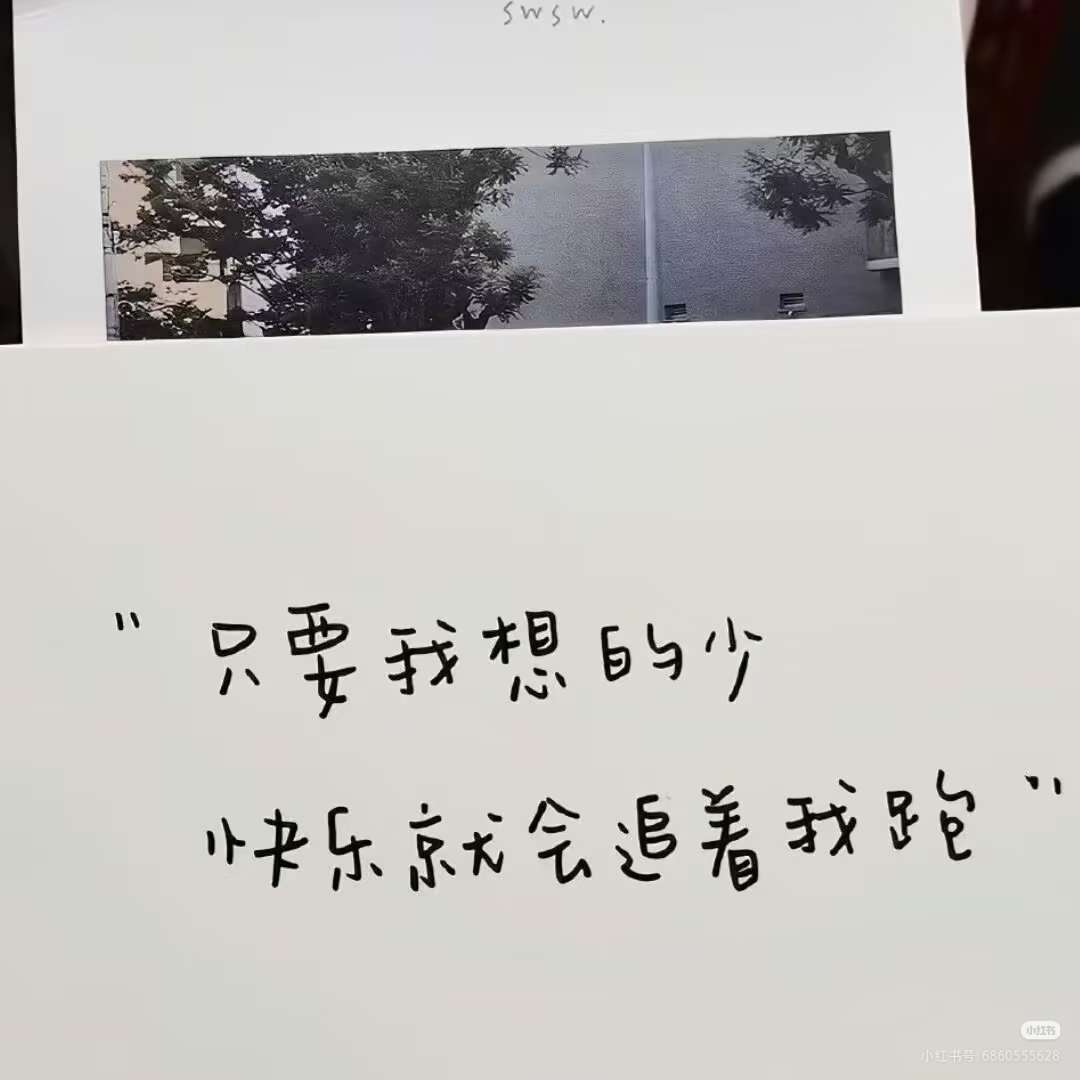 swsw.
"只要我想的少
快乐就会追着我跑"
小红书
小红书号:6860555628